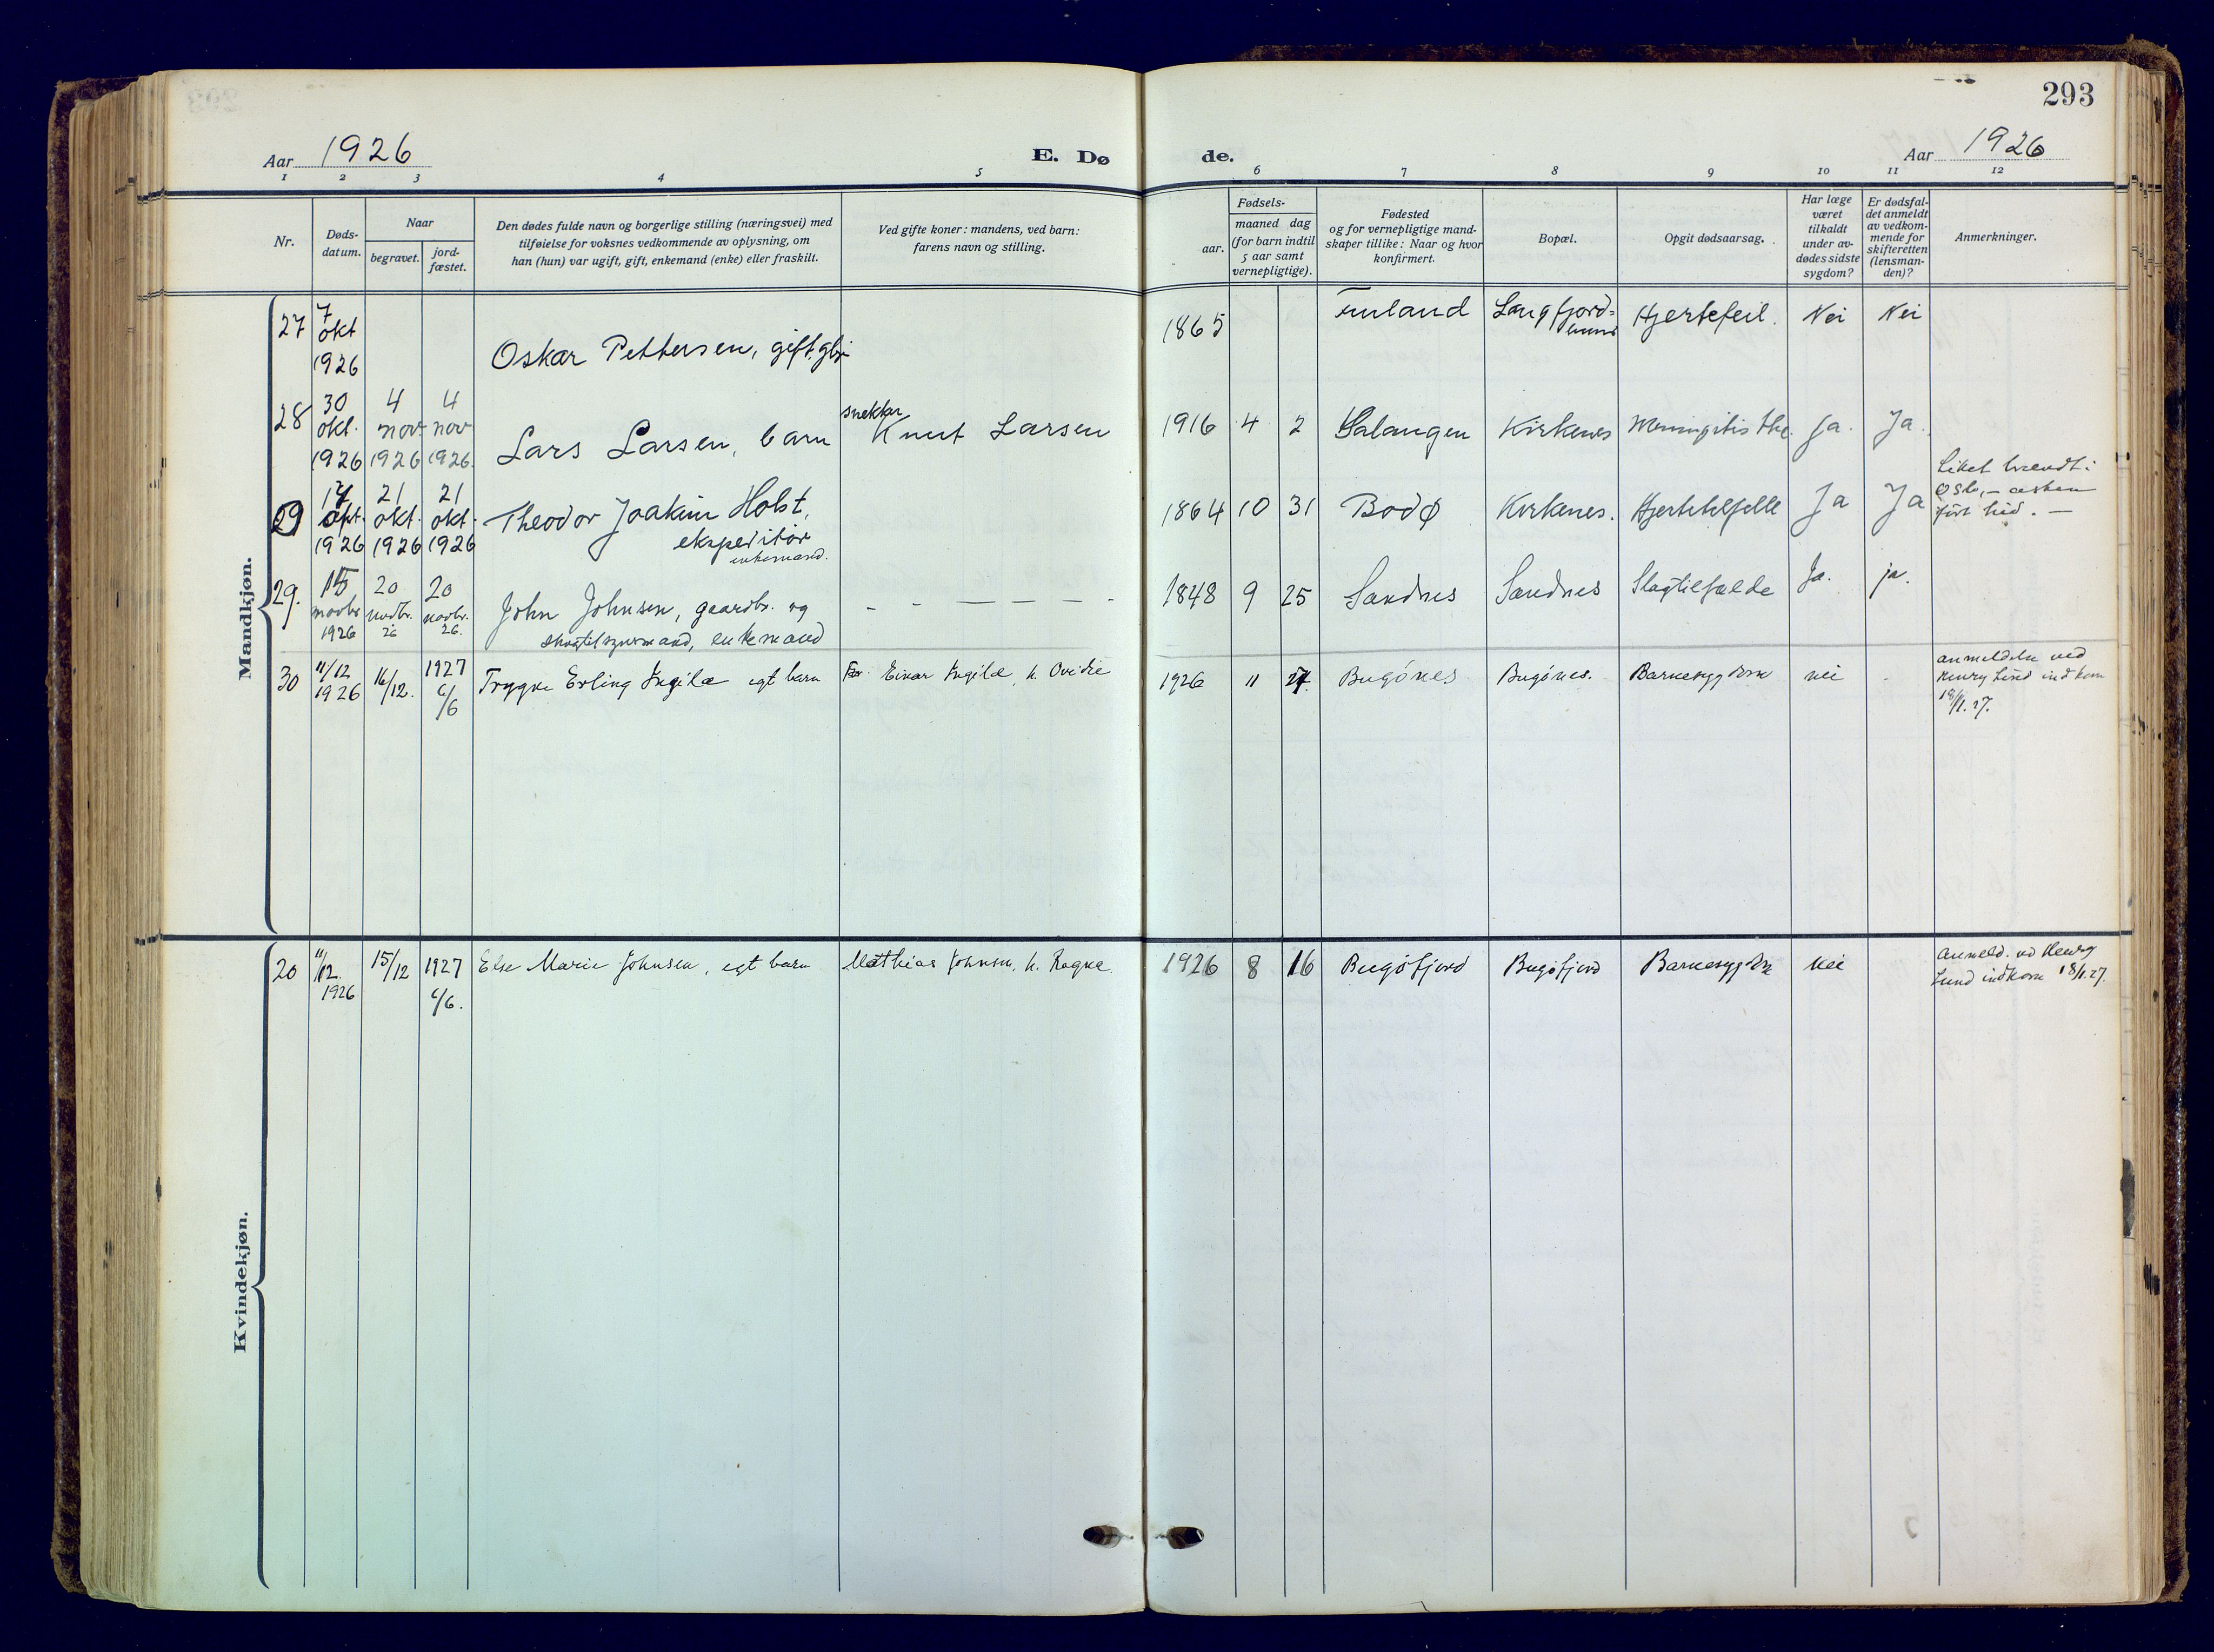 293
Aar 1926
E. Dø
de.
Aar 1926
1 2 3 4 5 6 7 8 9 10 11 12
Nr.
Døds-
datum.
Naar
begravet.
jord-
fæstet.
Den dødes fulde navn og borgerlige stilling (næringsvei) med
tilføielse for voksnes vedkommende av oplysning, om
han (hun) var ugift, gift, enkemand (enke) eller fraskilt.
Ved gifte koner: mandens, ved barn:
farens navn og stilling.
Fødsels-
aar.
maaned dag
(for barn indtil
5 aar samt
vernepligtige).
Fødested
og for vernepligtige mand-
skaper tillike: Naar og hvor
konfirmert.
Bopæl.
Opgit dødsaarsag.
Har læge
været
tilkaldt
under av-
dødes sidste
sygdom?
Er dødsfal-
det anmeldt
av vedkom-
mende for
skifteretten
(lensman-
den)?
Anmerkninger.
Mandkjøn.
27
7
okt
1926
Oskar Pettersen, gift
1865
Finland
Langfjord=
Hjertefeil.
Nei
Nei
28
30
okt.
1926
4
nov
1926
4
nov
1926.
Lars Larsen, barn
snekker
Knut Larsen
1916 4 2
Salangen
Kirkenes
Meningitis tbc.
Ja.
Ja.
29
17
okt.
1926
21
okt.
1926
21
okt.
1926
Theodor Joakim Holst,
ekspeditør
enkemand.
1864 10 31
Bodø
Kirkenes.
Hjertetilfelle
Ja
Ja
Liket brendt i
Oslo, – asken
ført hid. –
29.
15
novbr.
1926
20
novbr.
26
20
novbr.
26.
John Johnsen, gaardbr. og
skogtilsynsmand, enkemand
– – – – – –
1848 9 25
Sandnes
Sandnes
Slagtilfælde
Ja.
ja.
30
11/12
1926
16/12.
1927
6/6
Trygve Erling Ingilæ egt barn
Far. Einar Ingilæ, h. Ovidie
1926 11 27.
Bugönes
Bugönes.
Barnesygdom
nei
-
anmeldelse ved
Henry Lund indkom
18/1.27.
Kvindekjøn.
20
11/12.
1926
15/12
1927
6/6.
Else Marie Johnsen, egt barn
Mathias Johnsen, h. Ragna.
1926 8 16
Bugöfjord
Bugöfjord
Barnesygdom
nei
Anmeld. ved Henry
Lund indkom 18/1.27.